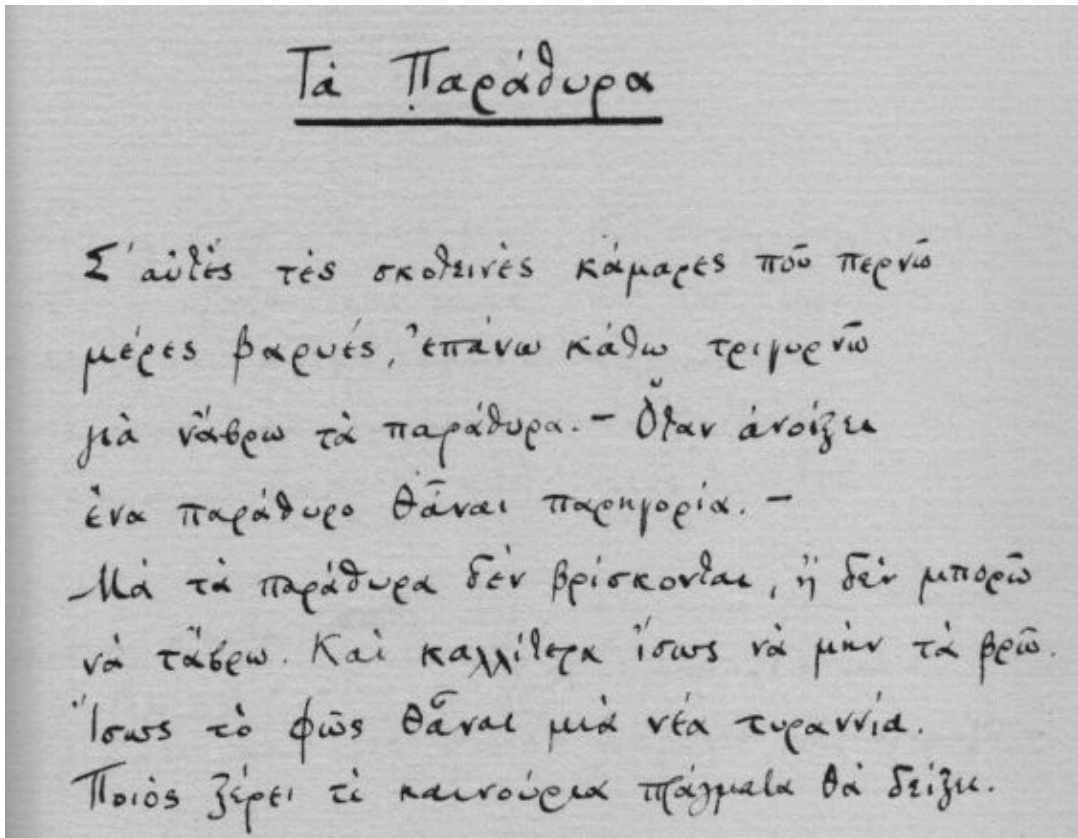 Τὰ Παράθυρα
Σ' αὐτὲς τὲς σκοτεινὲς κάμαρες ποῦ περνῶ
μέρες βαρυές, ἐπάνω κάθω τριγυρνῶ
γιὰ νἄβρω τὰ παράθυρα. — Ὅταν ἀνοίξει
ἕνα παράθυρο θἆναι παρηγορία. —
Μὰ τὰ παράθυρα δὲν βρίσκονται, ἢ δὲν μπορῶ
νὰ τἄβρω. Καὶ καλλίτερα ἴσως νὰ μὴν τὰ βρῶ.
Ἴσως τὸ φῶς θἆναι μιὰ νέα τυραννία.
Ποιὸς ξέρει τὶ καινούρια πράγματα θὰ δείξει.